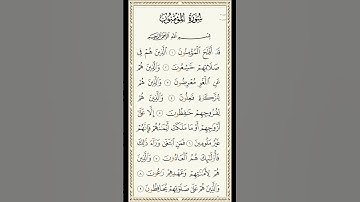 سُورَةُ المُؤْمِنُونَ
بِسْمِ اللَّهِ الرَّحْمَٰنِ الرَّحِيمِ
قَدْ أَفْلَحَ الْمُؤْمِنُونَ ١ الَّذِينَ هُمْ فِي
صَلَاتِهِمْ خَٰشِعُونَ ٢ وَالَّذِينَ هُمْ
عَنِ اللَّغْوِ مُعْرِضُونَ ٣ وَالَّذِينَ هُمْ
لِلزَّكَوٰةِ فَٰعِلُونَ ٤ وَالَّذِينَ هُمْ
لِفُرُوجِهِمْ حَٰفِظُونَ ٥ إِلَّا عَلَىٰ
أَزْوَٰجِهِمْ أَوْ مَا مَلَكَتْ أَيْمَٰنُهُمْ فَإِنَّهُمْ
غَيْرُ مَلُومِينَ ٦ فَمَنِ ابْتَغَىٰ وَرَاءَ ذَٰلِكَ
فَأُولَٰئِكَ هُمُ الْعَادُونَ ٧ وَالَّذِينَ
هُمْ لِأَمَٰنَٰتِهِمْ وَعَهْدِهِمْ رَٰعُونَ ٨
وَالَّذِينَ هُمْ عَلَىٰ صَلَوَٰتِهِمْ يُحَافِظُونَ ٩